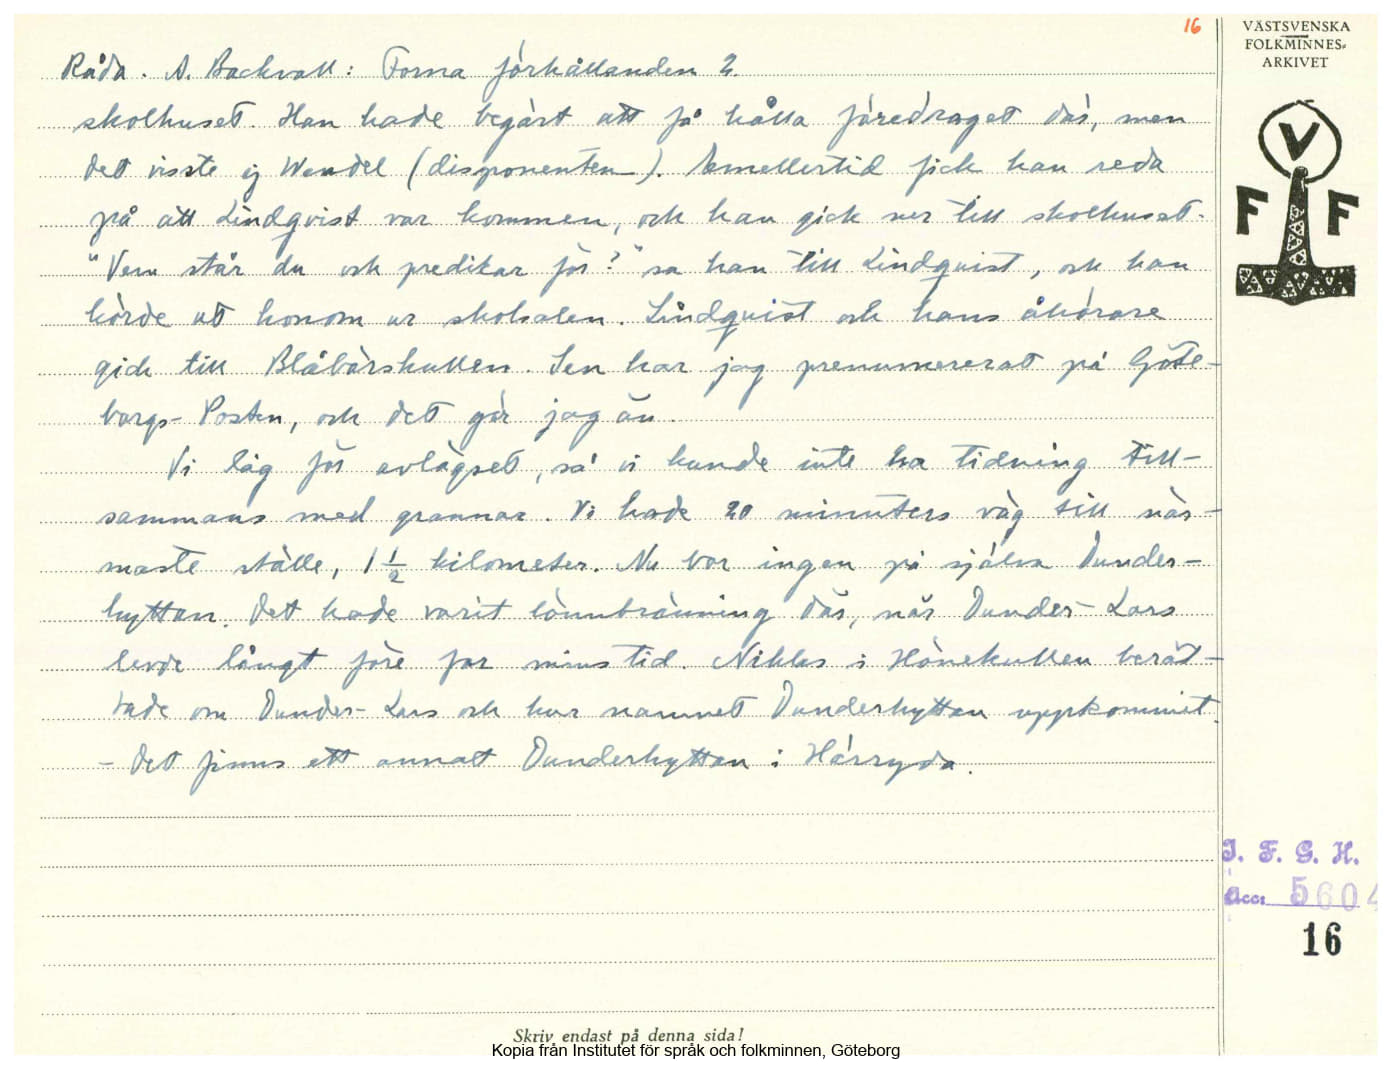 16
VÄSTSVENSKA
FOLKMINNES-
ARKIVET
V
F F
Råda. A. Backvall: Forna förhållanden 2.
skolhuset. Han hade begärt att få hålla föredraget där, men
det visste ej Wendel (disponenten). Emellertid fick han reda
på att Lindqvist var kommen, och han gick ner till skolhuset.
"Vem står du och predikar för?" sa han till Lindquist, och han
körde ut honom ur skolsalen. Lindquist och hans åhörare
gick till Blåbärskullen. Sen har jag prenumererat på Göte-
borgs-Posten, och det gör jag än.
Vi låg för avlägset, så vi kunde inte ha tidning till-
sammans med grannar. Vi hade 20 minuters väg till när-
maste ställe, 1 1/2 kilometer. Nu bor ingen på själva Dunder-
hyttan. Det hade varit lönnbränning där, när Dunder-Lars
levde långt före far mins tid. Niklas i Hönekullen berät-
tade om Dunder-Lars och hur namnet Dunderhyttan uppkommit.
- Det finns ett annat Dunderhyttan i Härryda.
I. F. G. H.
Acc: 5604
16
Skriv endast på denna sida!
Kopia från Institutet för språk och folkminnen, Göteborg